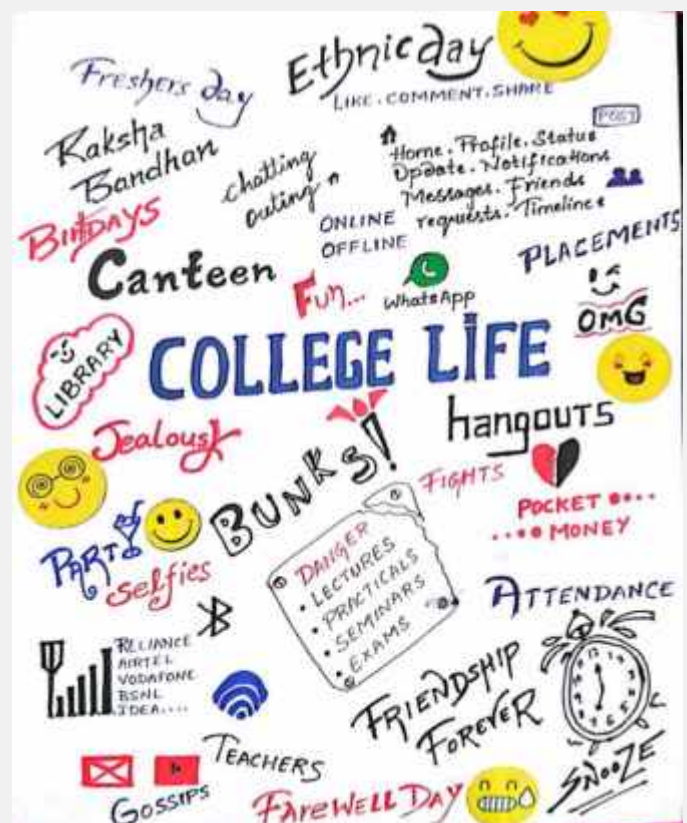 Ethnic day
Freshers day
LIKE. COMMENT. SHARE
POST
Raksha
Bandhan
chatting
outing
Home. Profile. Status
Update. Notifications
Messages. Friends
requests. Timelines
BirtDAYS
ONLINE
OFFLINE
PLACEMENTS
Canteen
Fun...
WhatsApp
OMG
LIBRARY
COLLEGE LIFE
Jealousy
hangouts
BUNKS!
FIGHTS
POCKET
MONEY
PARTY
Selfies
DANGER
• LECTURES
• PRACTICALS
• SEMINARS
• EXAMS
ATTENDANCE
RELIANCE
AIRTEL
VODAFONE
BSNL
IDEA....
FRIENDSHIP
FOREVER
12
TEACHERS
SNOOZE
GOSSIPS
FAREWELL DAY